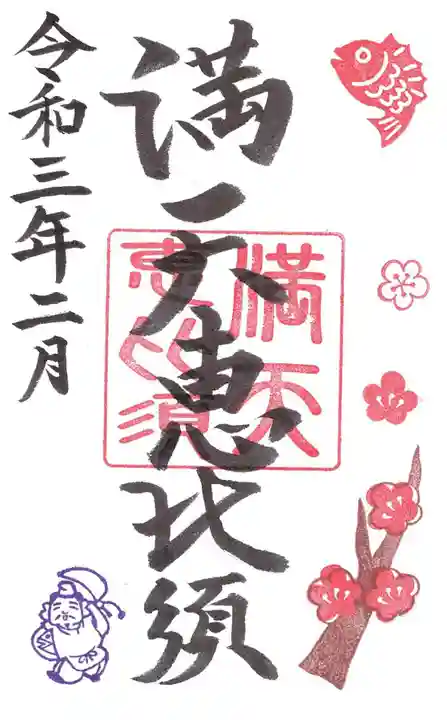 満天恵比須
満天
恵比須
令和三年二月